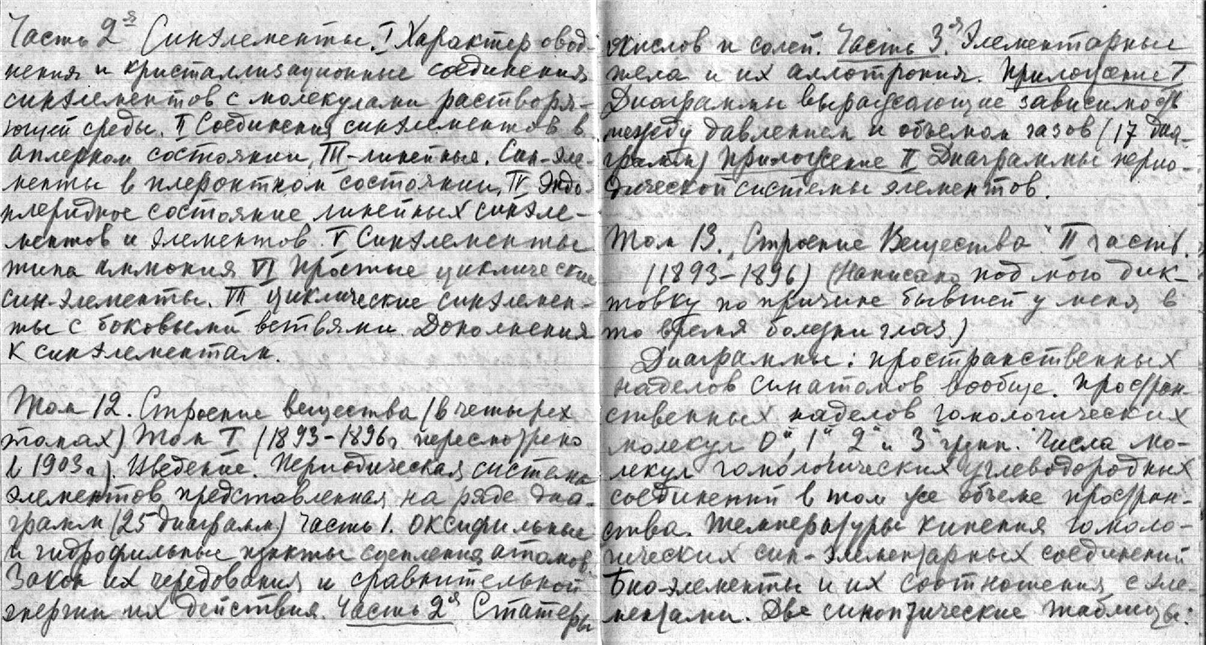 Часть 2я Синэлементы. I Характер овод-
нения и кристаллизационные соединения
синэлементов с молекулами растворя-
ющей среды. II Соединения синэлементов в
аплерном состоянии, III-линейные. Син-эле-
менты в плеронтном состоянии, IV Эндо-
плеридное состояние линейных синэле-
ментов и элементов. V Синэлементы
типа аммония VI Простые циклические
син-элементы. VII Циклические синэлемен-
ты с боковыми ветвями. Дополнения
к синэлементам.
Том 12. Строение вещества (в четырех
томах) Том I (1893-1896г пересмотрено
в 1903г). Введение. Периодическая система
элементов представленная на ряде диа-
грамм (25 диаграмм) Часть 1. Оксифильные
и гидрофильные пункты сцепления атомов
Закон их чередования и сравнительной
энергии их действия. Часть 2я Статеры
кислов и солей. Часть 3.я Элементарные
тела и их аллотропия. Приложение I
Диаграммы выражающие зависимость
между давлением и объемом газов (17 диа-
грамм) Приложение II Диаграммы перио-
дической системы элементов.
Том 13. „Строение Вещества" II часть.
(1893-1896) (Написано под мою дик-
товку по причине бывшей у меня в
то время болезни глаз)
Диаграммы: пространственных
наделов синатомов вообще. Простран-
ственных наделов гомологических
молекул 0", 1", 2" и 3" групп. Числа мо-
лекул гомологических углеводородных
соединений в том же объеме простран-
ства. Температуры кипения гомоло-
гических син-элементарных соединений
Био-элементы и их соотношения с эле-
ментами. Две синоптические таблицы: